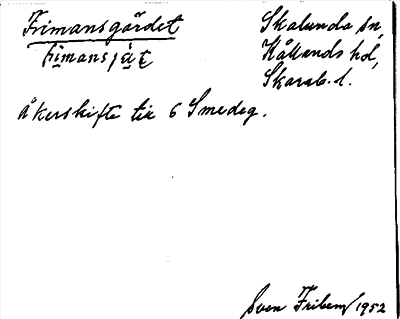 Frimansgärdet
Skalunda sn,
Kållands hd,
Skarab. l.
åkerskifte till 6 Smedeg.
Sven Fribem 1952